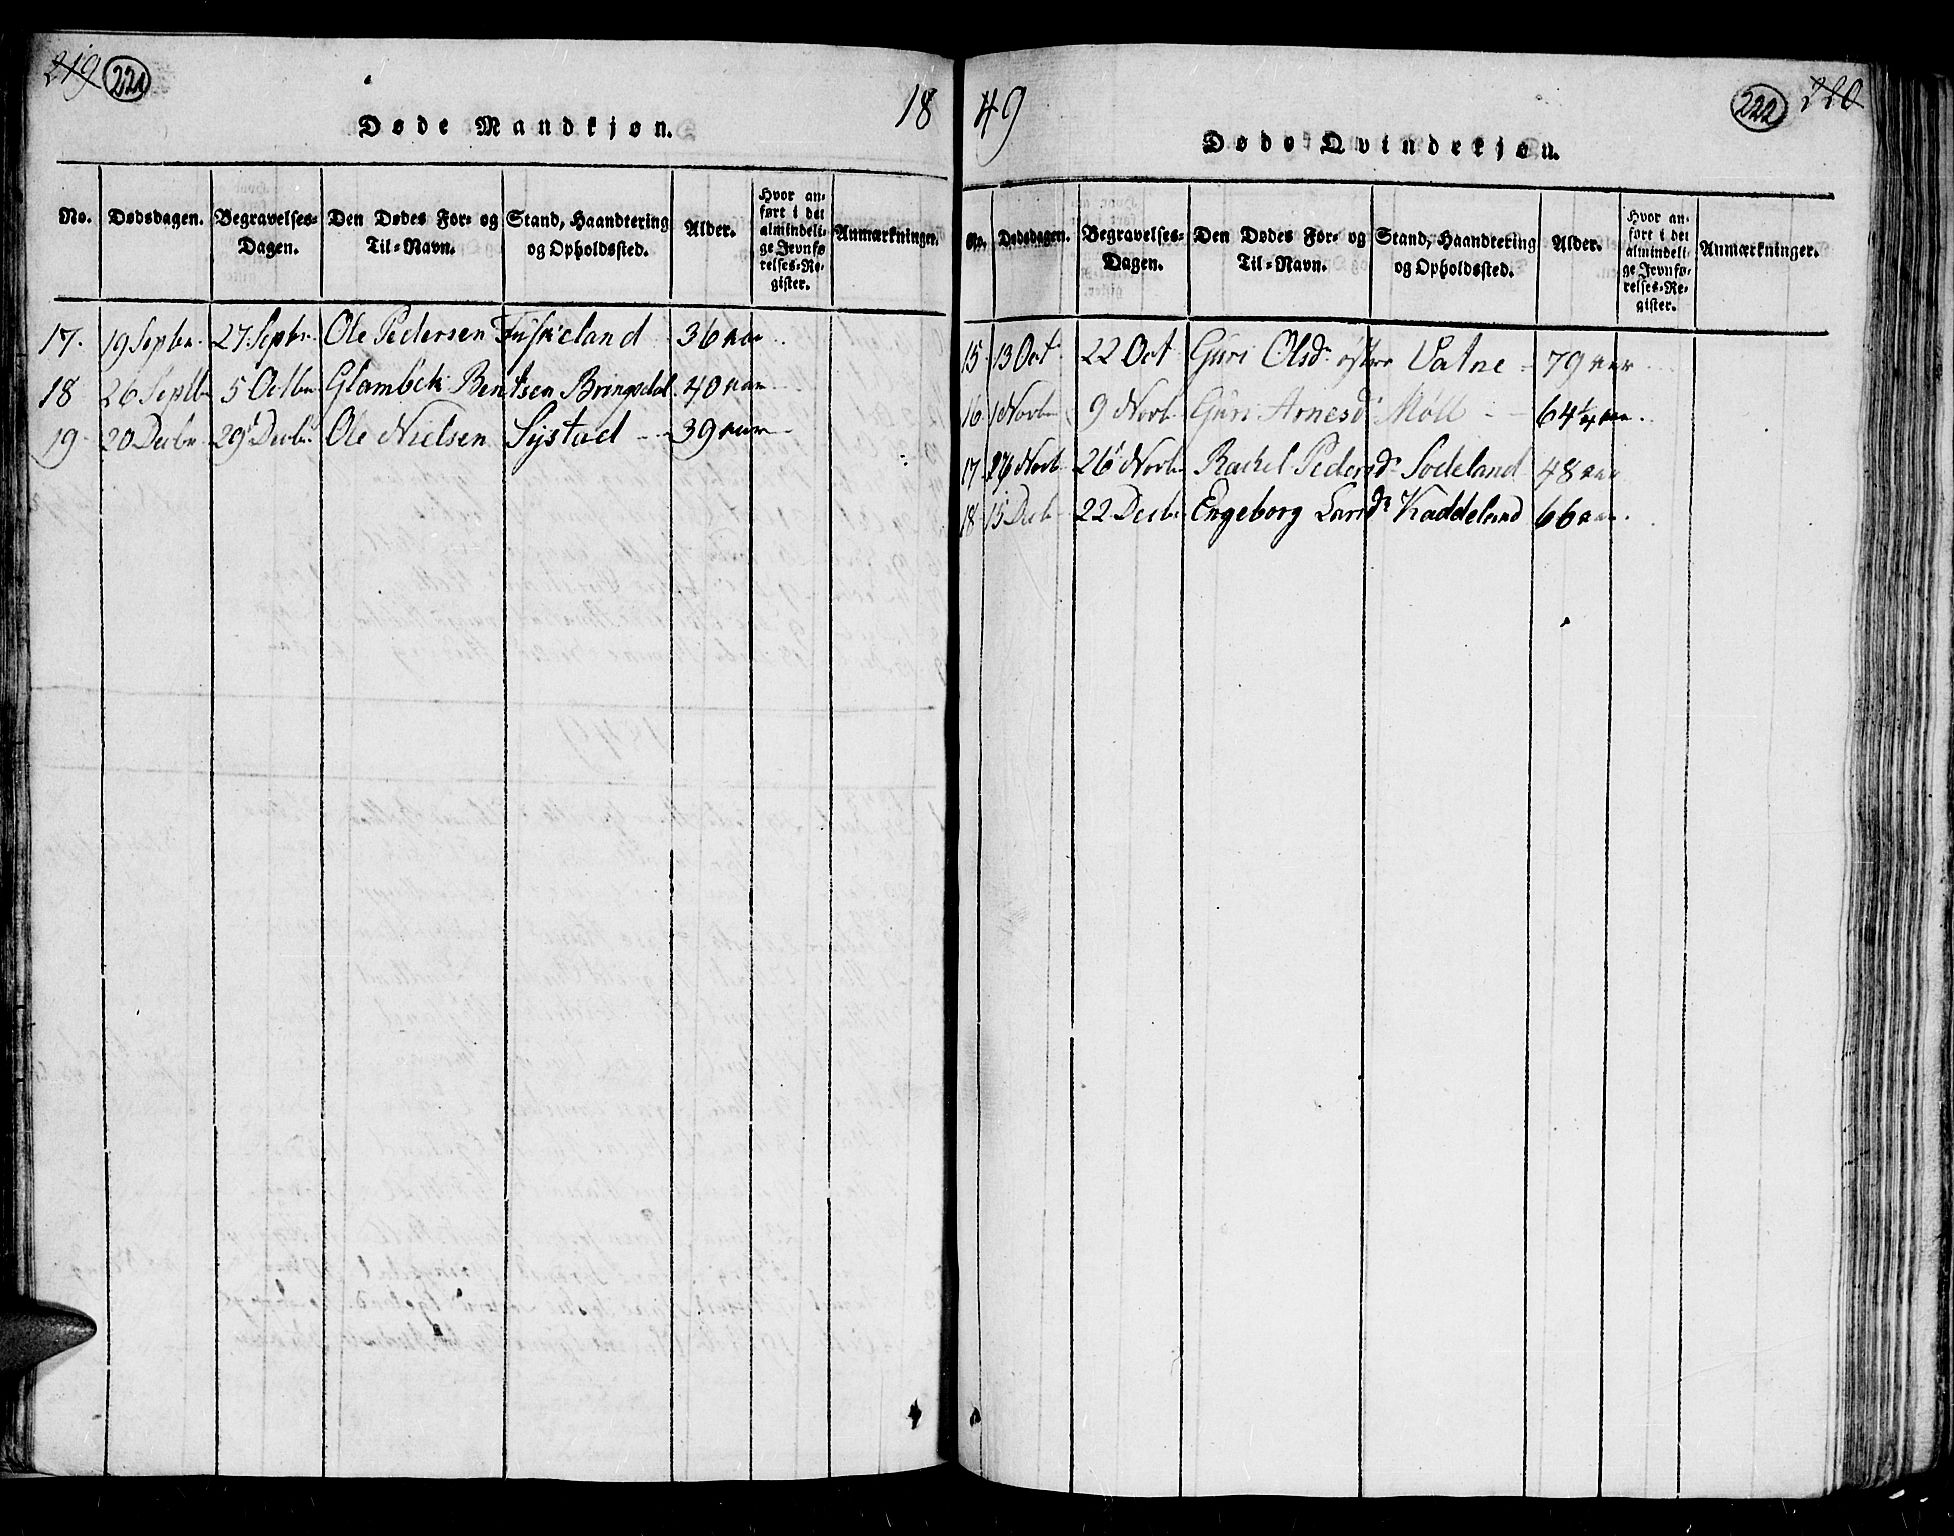 219 221
18
Døde Mandkjøn.
No. Dødsdagen. Begravelses-Dagen. Den Dødes For- og Til-Navn. Stand, Haandtering og Opholdssted. Alder. Hvor anført i det almindelige Jevnførelses-Register. Anmærkninger.
17. 19 Septbr. 27 Septbr. Ole Pedersen Fuskeland 36 aar
18 26 Septbr 5 Octbr Glambek Bentsen Bringsdal 40 aar
19 20 Decbr 29 Decbr Ole Nielsen Sÿstad - 39 aar
49
222 220
Døde Qvindekjøn.
No. Dødsdagen. Begravelses-Dagen. Den Dødes For- og Til-Navn. Stand, Haandtering og Opholdssted. Alder. Hvor anført i det almindelige Jevnførelses-Register. Anmærkninger.
15 13 Oct. 22 Oct Guri Olsdr østre Vatne - 79 aar
16 1 Novbr 9 Novb Guri Arnesd Møll - - 64 1/4 aar.
17. Novb 26 Novbr Rachel Pedersdr Sodeland 48 aar
18 15 Decb 22 Decbr Engeborg Larsdr Kaddeland 66 aar.